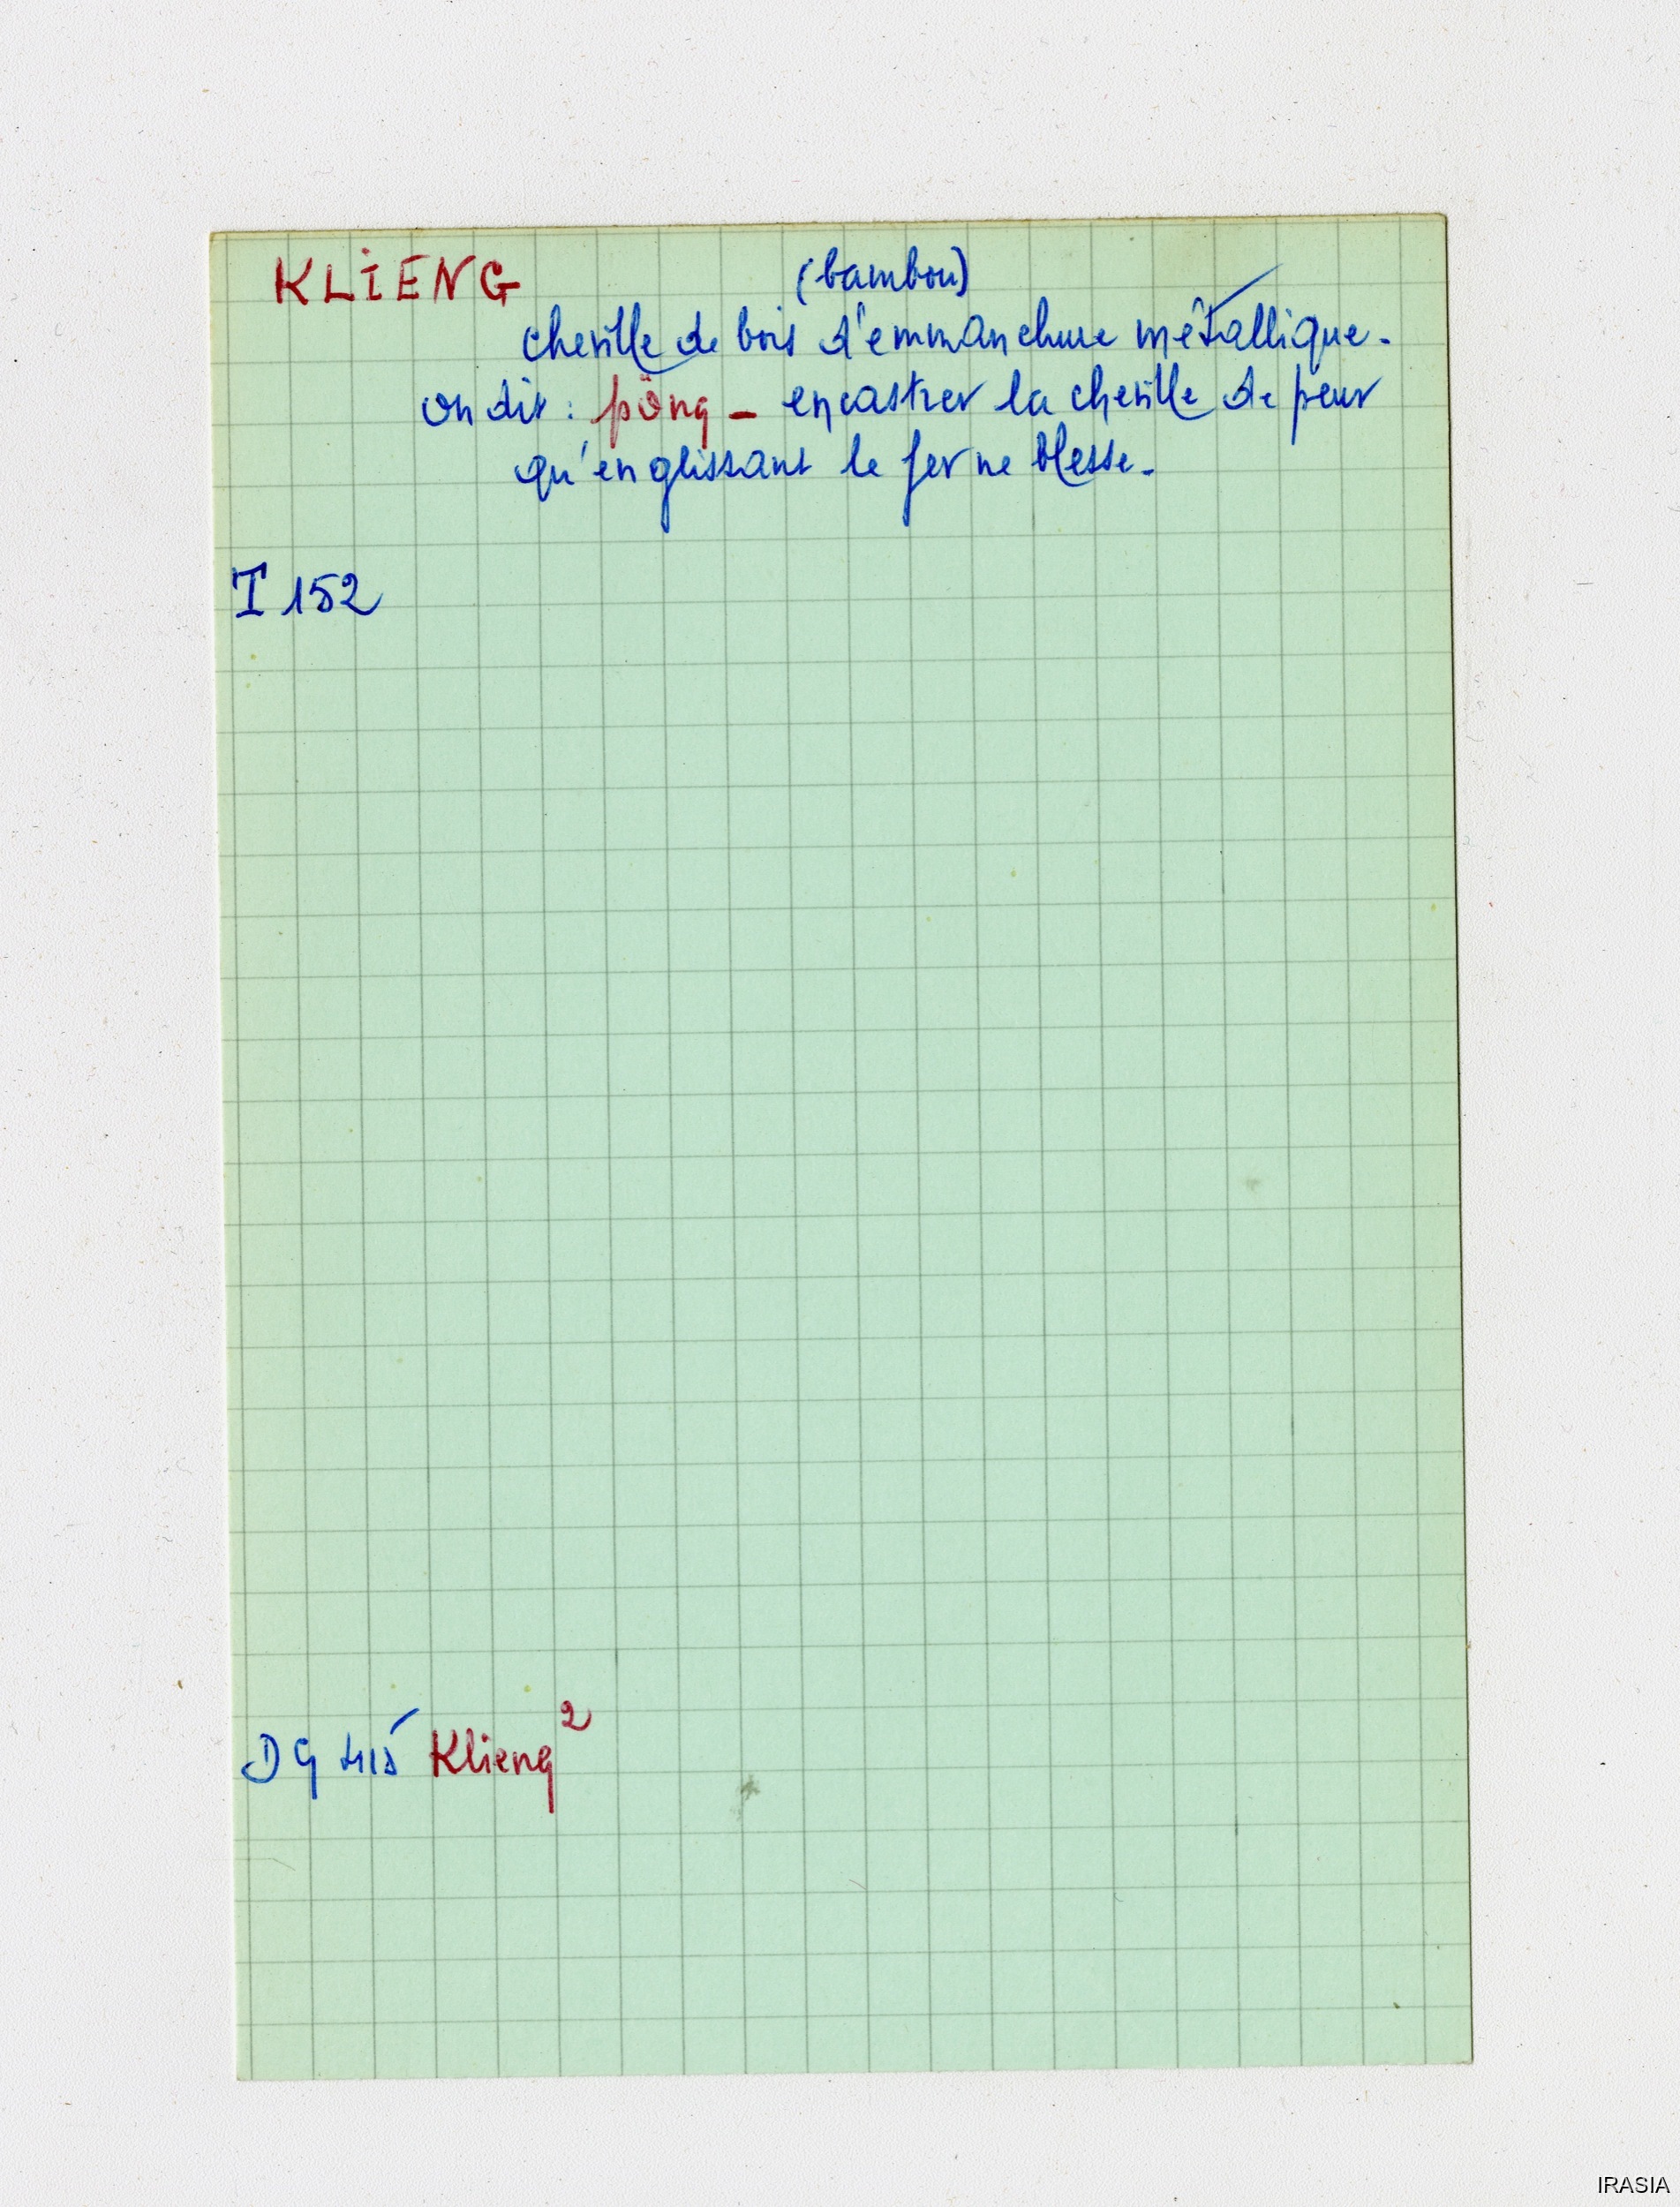 KLIENG
(bambou)
cheville de bois d'emmanchure métallique.
on dit : pöng – encastrer la cheville de peur
qu'en glissant le fer ne blesse.
I 152
DG 415 Klieng²
IRASIA